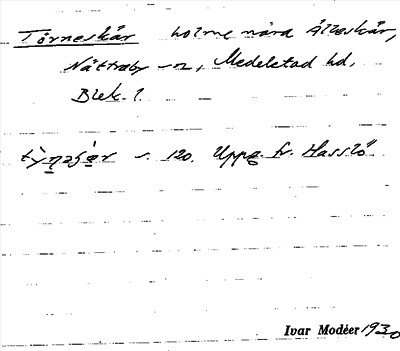 Törneskär holme nära Älveskär,
Nättraby sn, Medelstad hd,
Blek. l.
s. 120. Uppg. fr. Hasslö
Ivar Modéer 1930